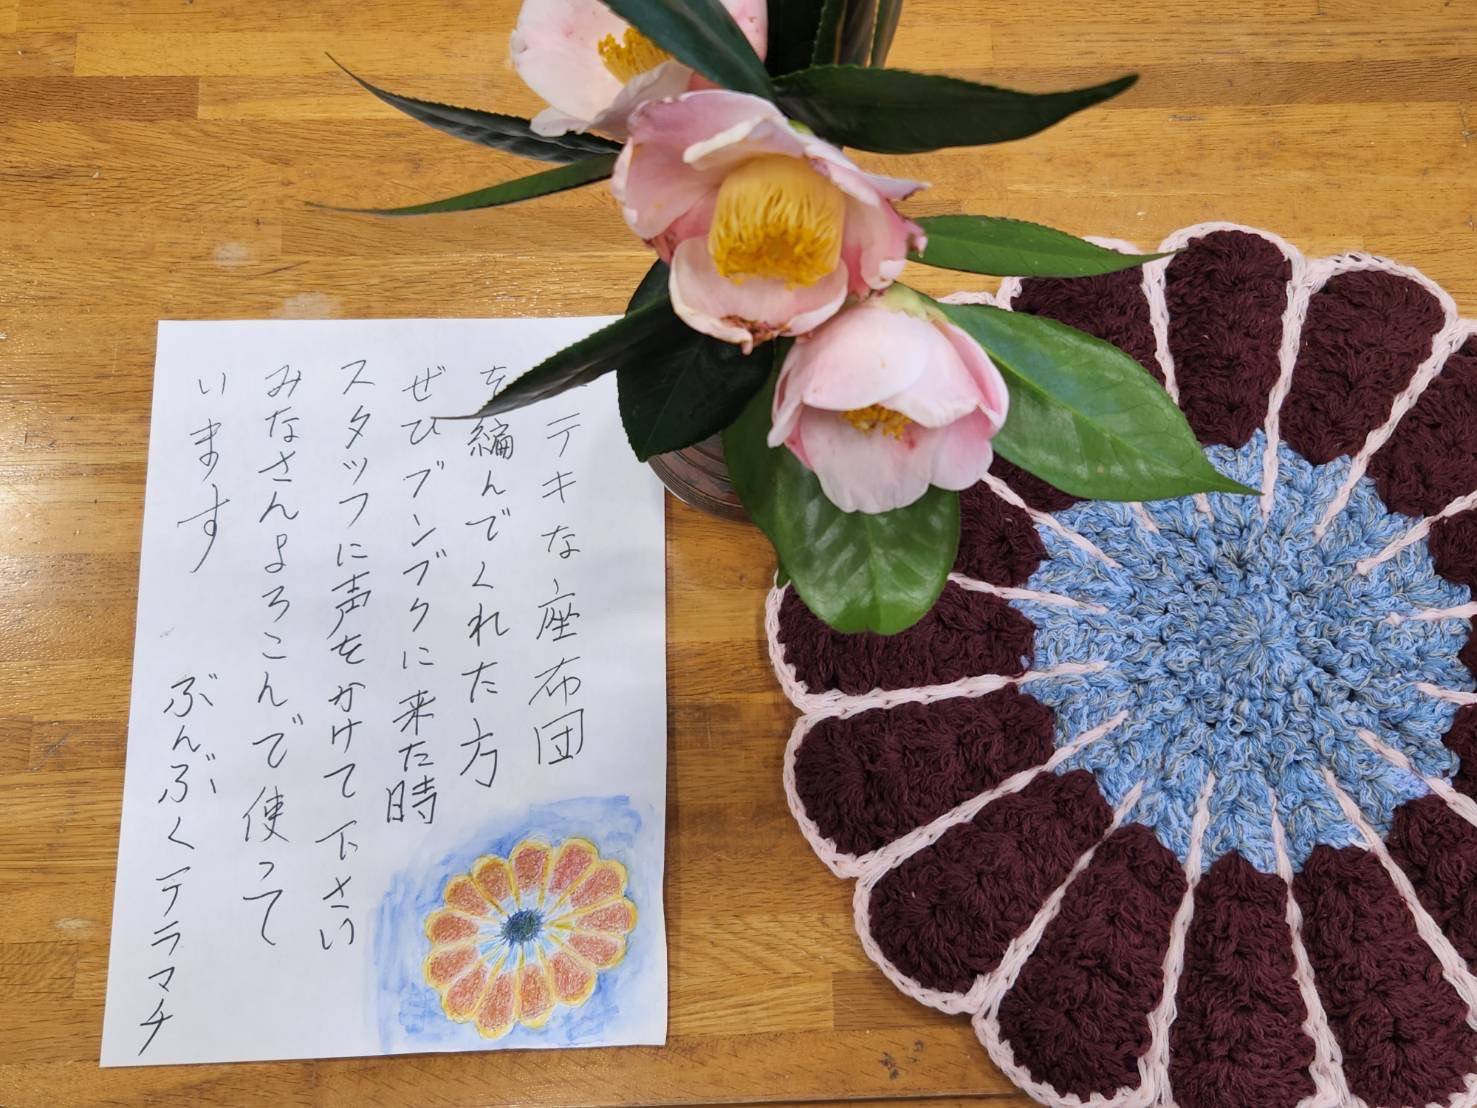 テキな座布団
を編んでくれた方
ぜひブンブクに来た時
スタッフに声をかけて下さい
みなさんよろこんで使って
います
ぶんぶくテラマチ